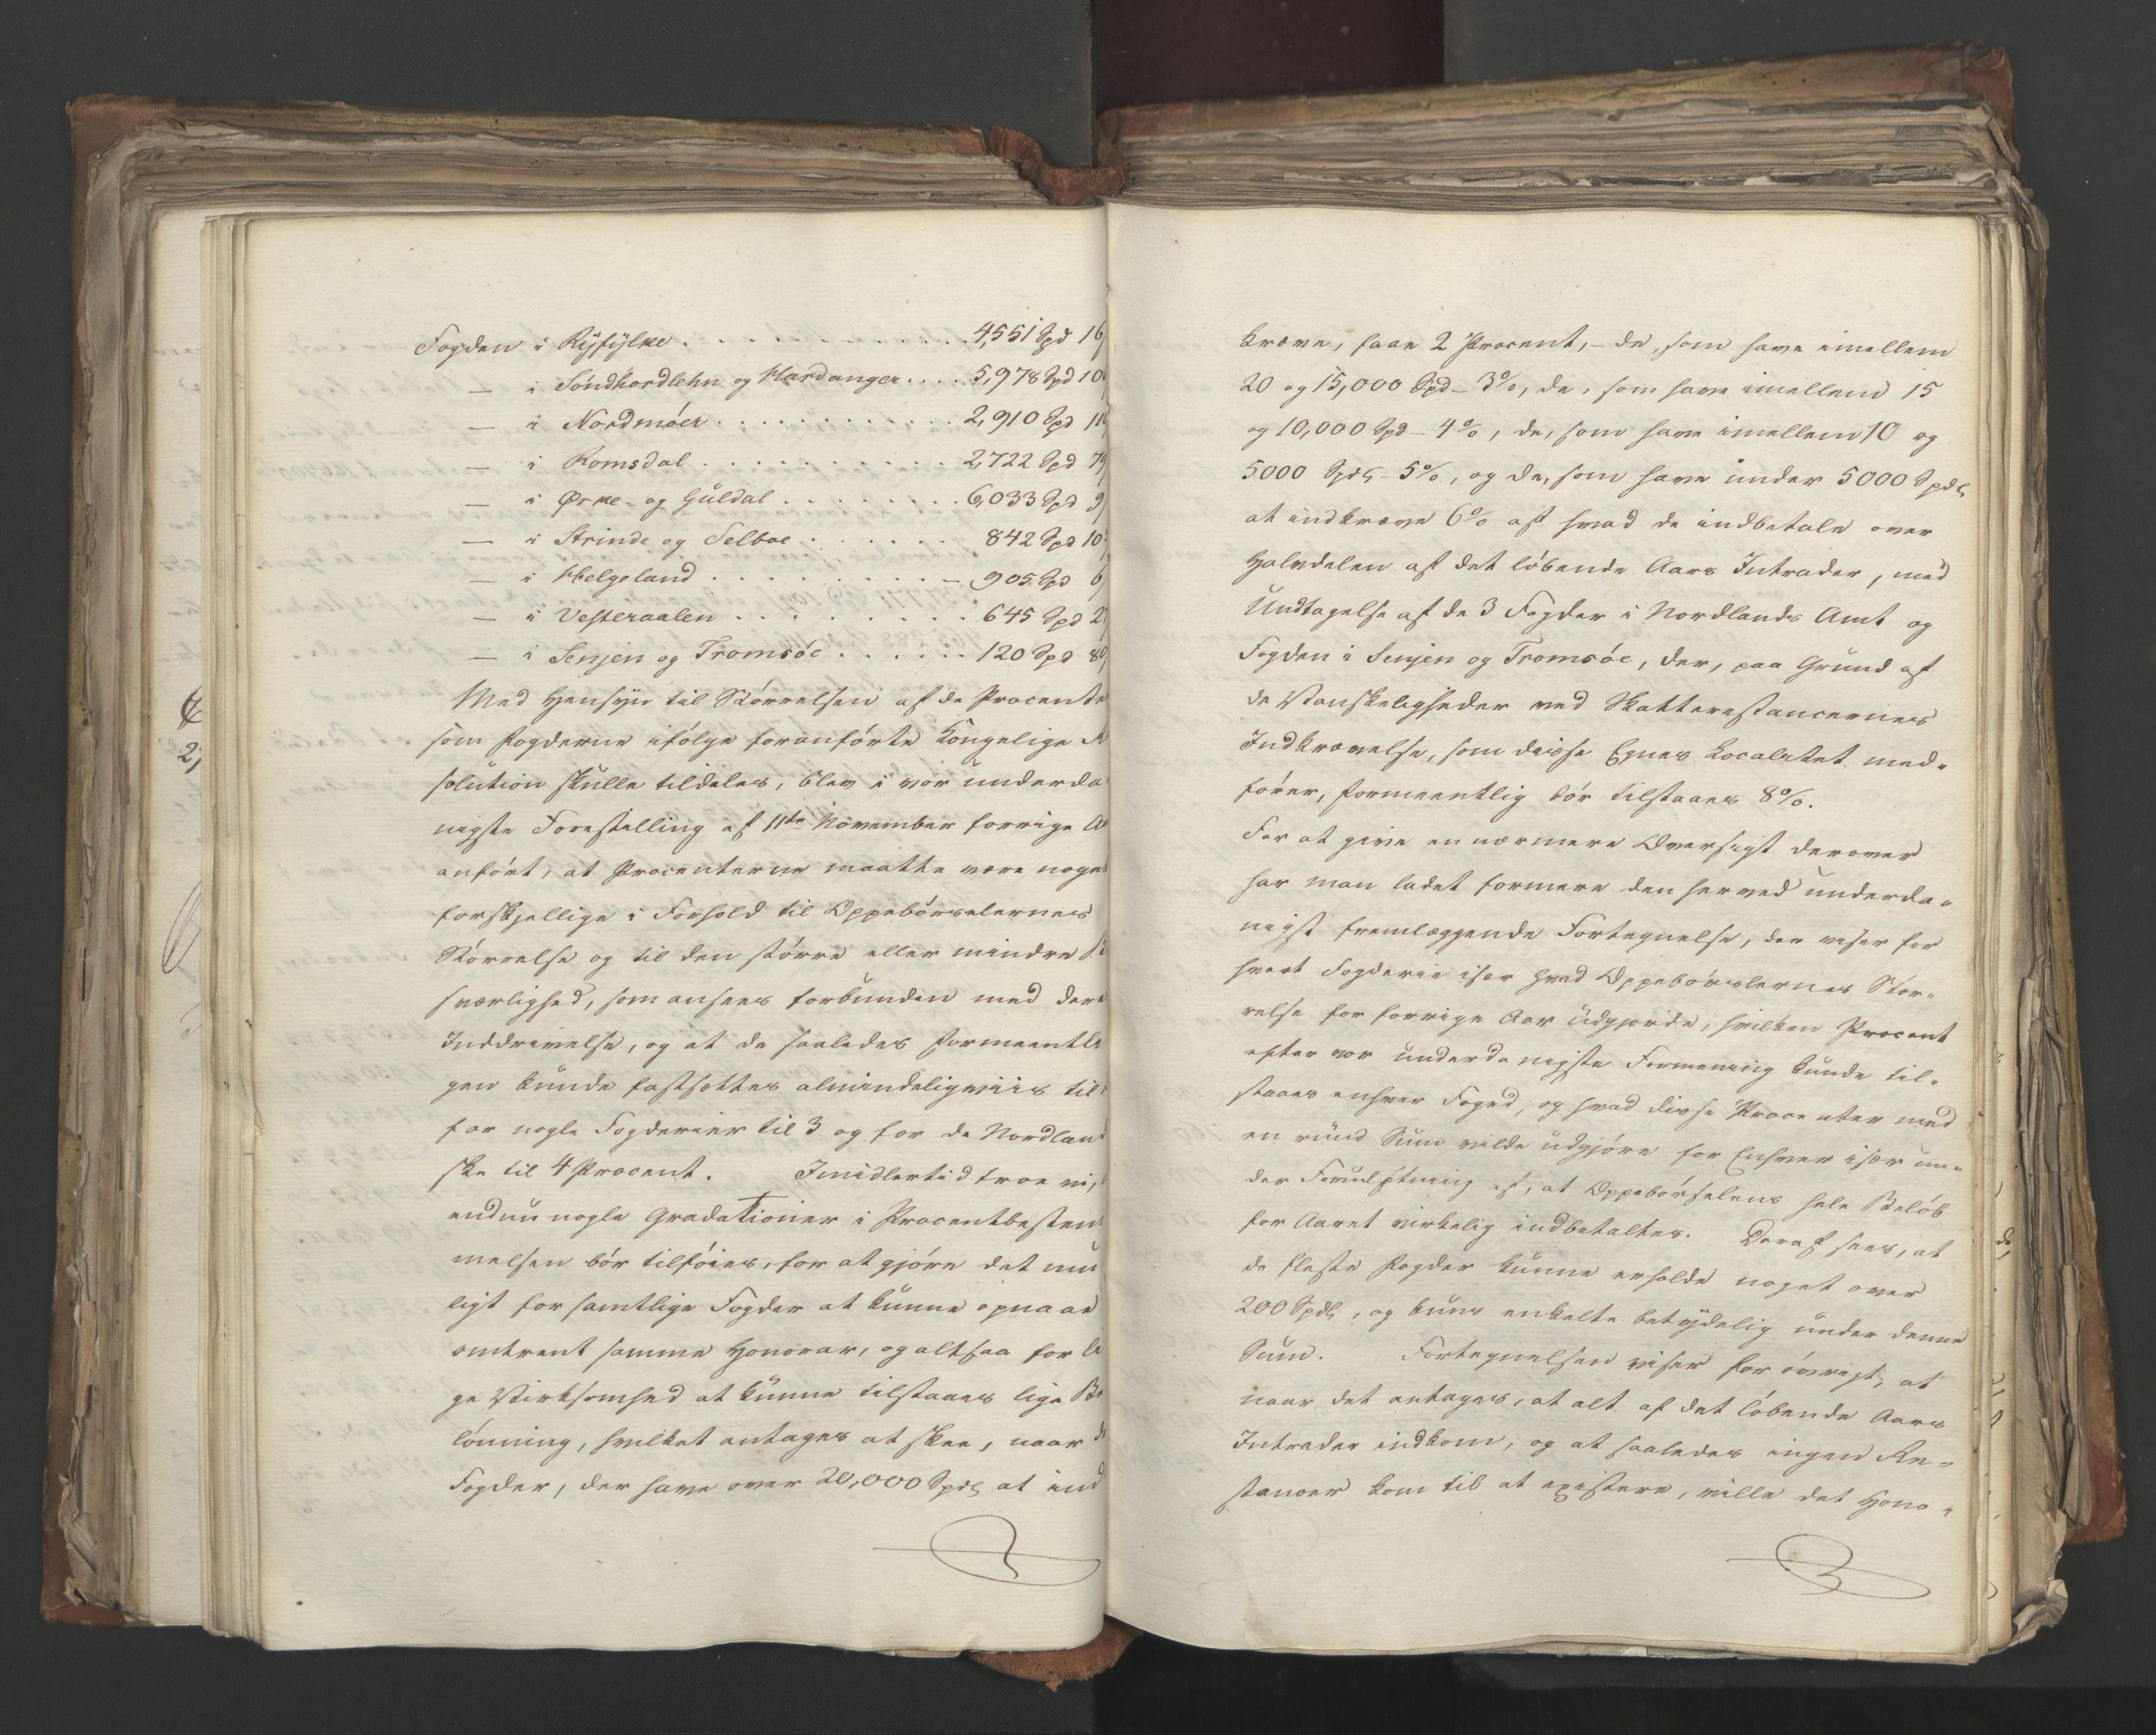 Fogden i Ryfylke . . . . . . . . . . . . 4,551 Spd 16
— i Söndhordlehn og Hardanger . . . . 5,978 Spd 10
— i Nordmöer . . . . . . . . . . . 2,910 Spd 11
— i Romsdal . . . . . . . . . . 2,722 Spd 79
— i Örke- og Guldal . . . . . . . . 6,033 Spd 9
— i Strinde og Selboe . . . . . . 842 Spd 10
— i Helgeland . . . . . . . . . . 905 Spd 6
— i Vesteraalen . . . . . . . . . 645 Spd 2
— i Senjen og Tromsöe . . . . . . 120 Spd 80
Med Hensyn til Störrelsen af de Procente
som Fogderne ifölge foranförte Kongelige
solution skulle tildeles, blev i vor underda
nigste Forestilling af 11te November forrige
anfört, at Procenterne maatte være noget
forskjellige i Forhold til Oppebörselernes
Störrelse og til den större eller mindre
sværlighed, som ansees forbunden med dere
Inddrivelse, og at de saaledes formeentli
gen kunde fastsættes almindeligviis til
for nogle Fogderier til 3 og for de Nordlan
ske til 4 Procent. Imidlertid troe vi,
endnu nogle Gradationer i Procentbestem
melsen bör tilföies, for at gjöre det mu
ligt for samtlige Fogder at kunne opnaae
omtrent samme Honorar, og altsaa for li
ge Virksomhed at kunne tilstaaes lige Be
lönning, hvilket antages at skee, naar de
Fogder, der have over 20,000 Spdr at ind
kræve, faae 2 Procent, – de, som have imellem
20 og 15,000 Spd – 3%, de, som have imellem 15
og 10,000 Spd – 4%, de, som have imellem 10 og
5000 Spdr – 5%, og de, som have under 5000 Spdr
at indkræve 6% af hvad de indbetale over
Halvdelen af det löbende Aars Intrader, med
Undtagelse af de 3 Fogder i Nordlands Amt og
Fogden i Senjen og Tromsöe, der, paa Grund af
de Vanskeligheder ved Skatterestancernes
Indkrævelse, som disse Egnes Localitet med-
förer, formeentlig bör tilstaaes 8%.
For at give en nærmere Oversigt derover
har man ladet formere den herved underda-
nigst fremlæggende Fortegnelse, der viser for
hvert Fogderie især hvad Oppebörslernes Stör-
relse for forrige Aar udgjorde, hvilken Procent
efter vor underdanigste Formening kunde til-
staaes enhver Foged, og hvad disse Procenter med
en rund Sum vilde udgjöre for Enhver især un-
der Forudsætning af, at Oppebörselens hele Belöb
for Aaret virkelig indbetaltes. Deraf sees, at
de fleste Fogder kunne erholde noget over
200 Spdr, og kuns enkelte betydelig under denne
Sum. Fortegnelsen viser for övrigt, at
naar det antages, at alt af det löbende Aars
Intrader indkom, og at saaledes ingen Re-
stancer kom til at existere, ville det Hono-